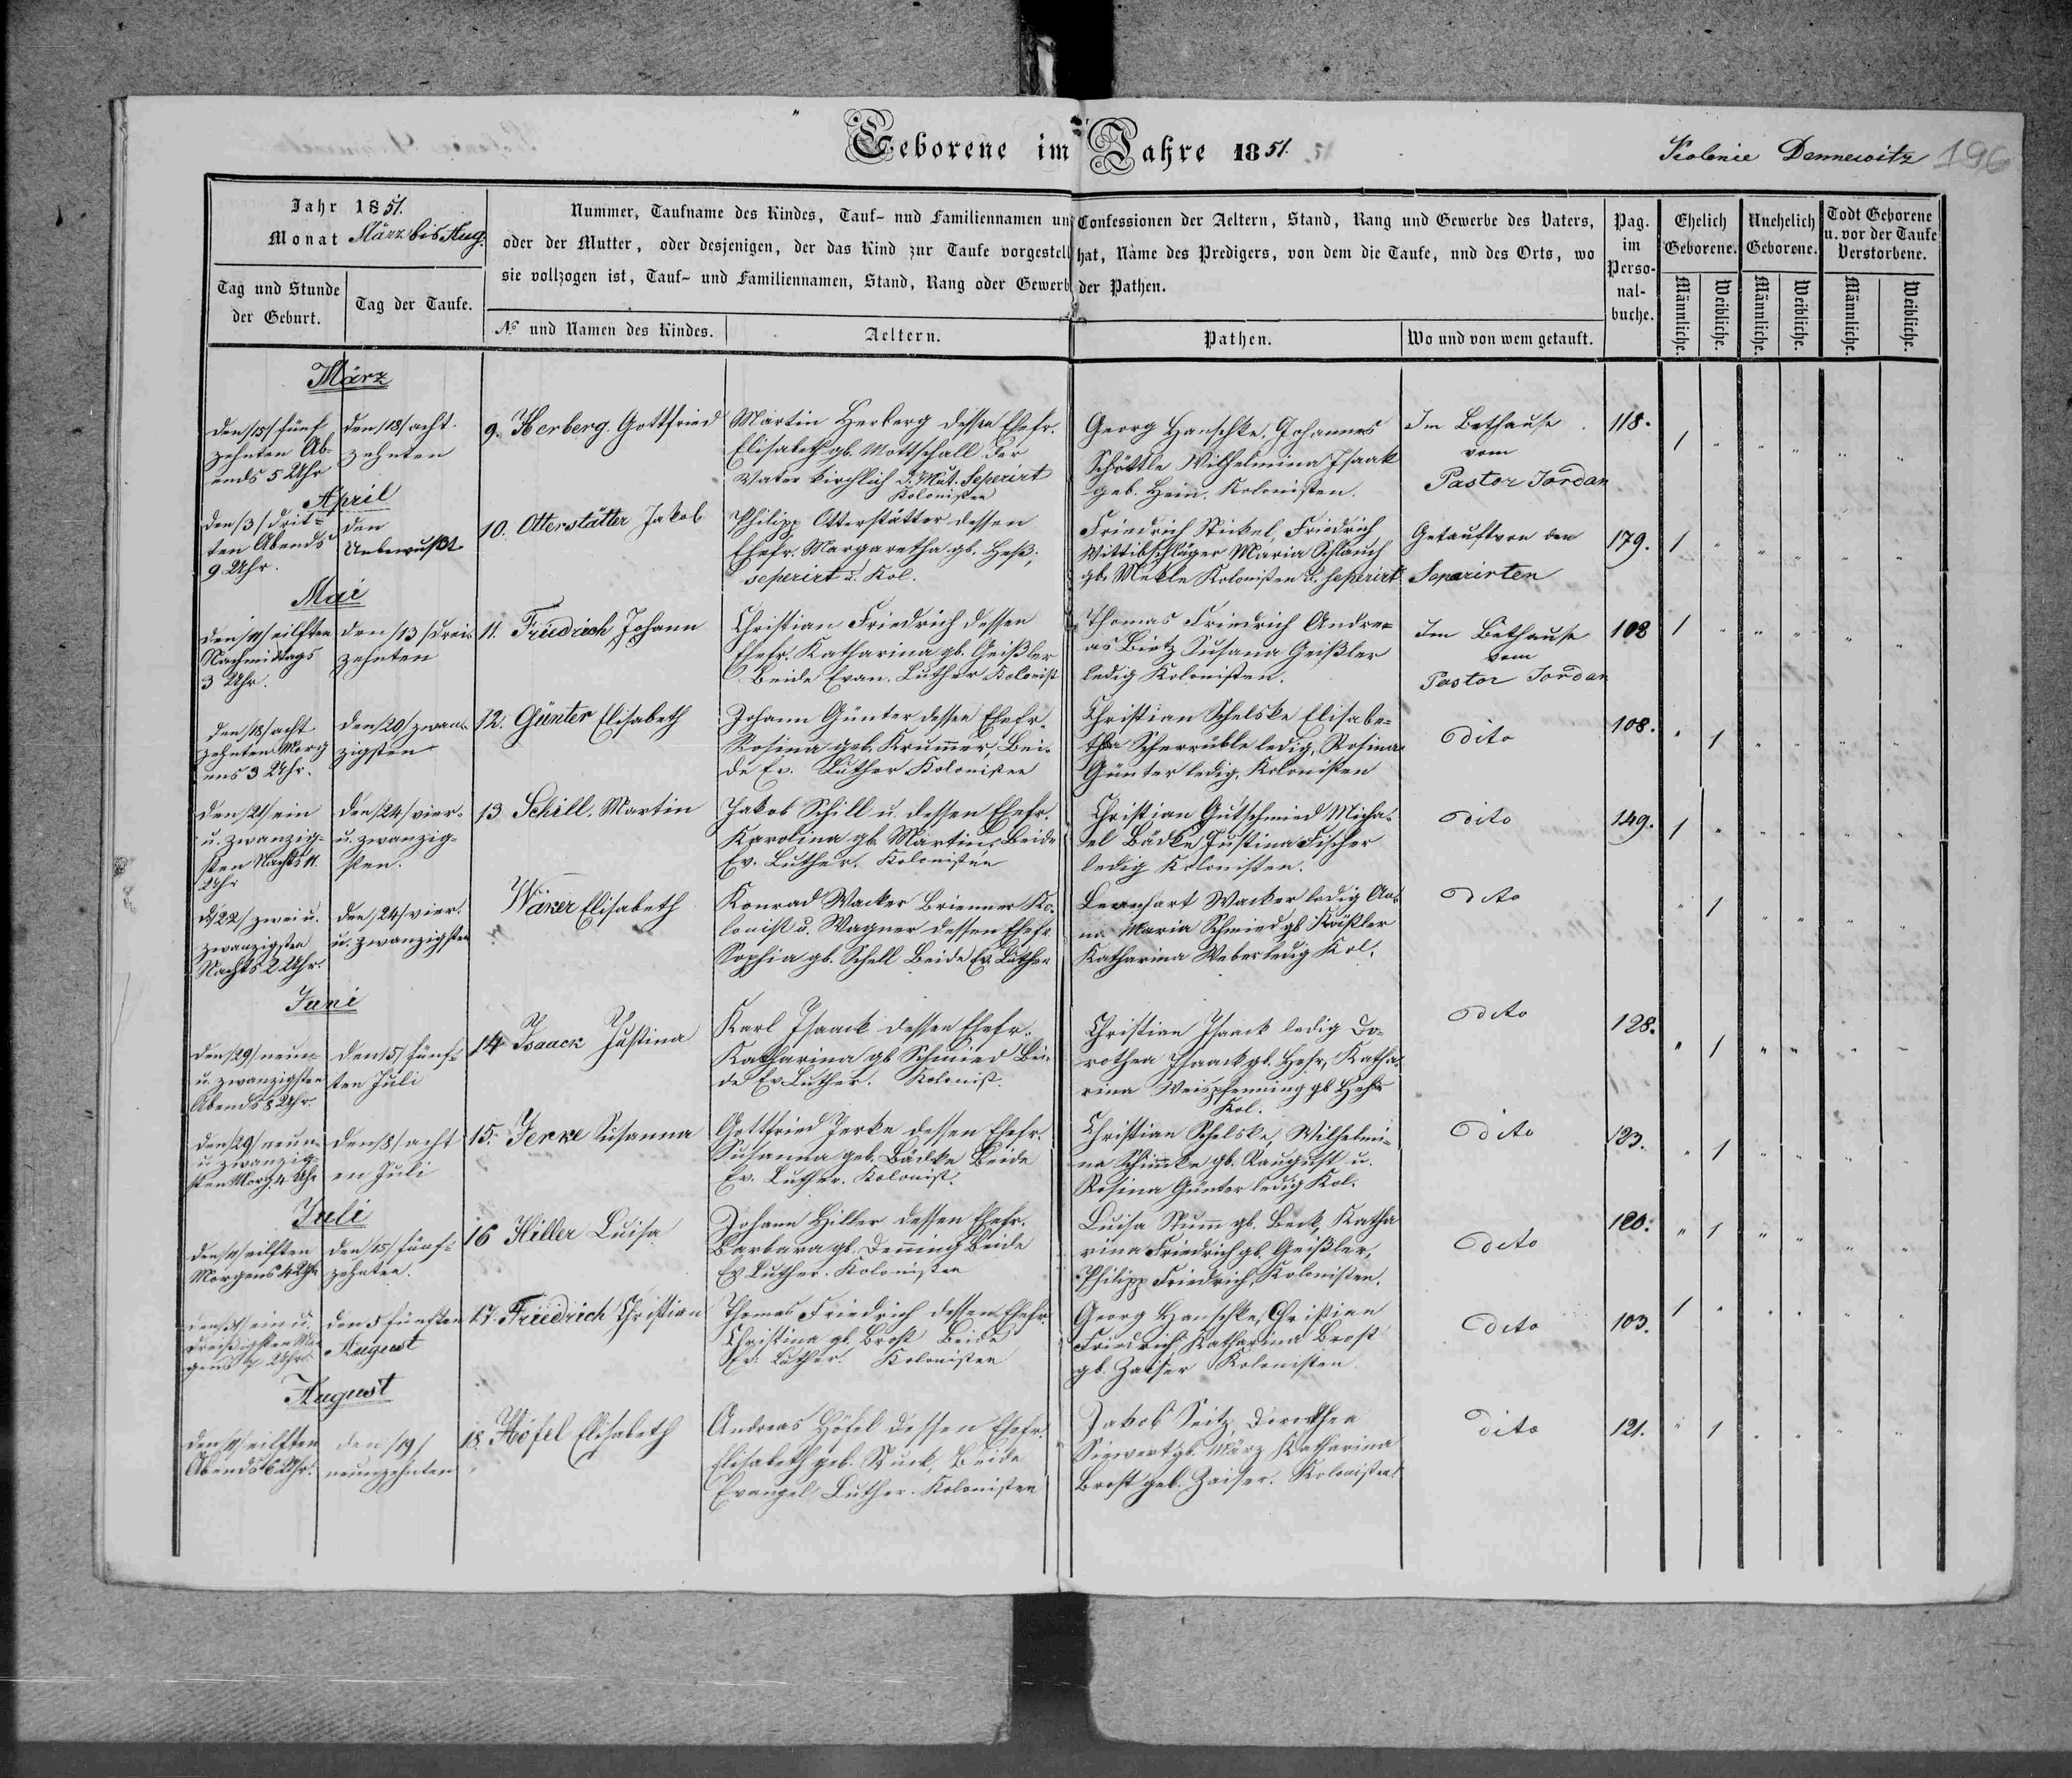 Geborene im Jahre 1851.
Kolonie Dennewitz 196
Jahr 1851.
Monat März bis Aug.
Tag und Stunde der Geburt.
Tag der Taufe.
Nummer, Taufname des Kindes, Tauf- und Familiennamen und Confessionen der Aeltern, Stand, Rang und Gewerbe des Vaters,
oder der Mutter, oder desjenigen, der das Kind zur Taufe vorgestellt hat, Name des Predigers, von dem die Taufe, und des Orts, wo
sie vollzogen ist, Tauf- und Familiennamen, Stand, Rang oder Gewerb der Pathen.
No und Namen des Kindes.
Aeltern.
Pathen.
Wo und von wem getauft.
Pag. im Perso-nal-buche.
Ehelich Geborene.
Unehelich Geborene.
Todt Geborene u. vor der Taufe Verstorbene.
Männliche. Weibliche. Männliche. Weibliche. Männliche. Weibliche.
März
den /15/ fünf
zehnten Ab-
ends 5 Uhr
den /18/ acht
zehnten
9. Herberg. Gottfried
Martin Herberg dessen Ehefr.
Elisabeth gb. Mottschall der
Vater kirchlich d. Mut. Seperirt
Kolonisten
Georg Hanschke, Johannes
Schöttle Wilhelmina Isaak
geb. Hein. Kolonisten.
Im Bethause
vom
Pastor Jordan
118.
1
April
den /3/ drit-
ten Abends
9 Uhr.
den
Unbewußt
10. Otterstätter Jakob
Philipp Otterstätter dessen
Ehefr. Margaretha gb. Heß,
seperirt u. Kol.
Friedrich Stickel, Friedrich
Wittibschläger Maria Schlauch
gb. Mekle Kolonisten u. seperirt
Getauft von den
Separirten
179.
1
Mai
den /11/ eilften
Nachmittags
3 Uhr.
den /13/ drei-
zehnten
11. Friedrich Johann
Christian Friedrich dessen
Ehefr. Katharina gb. Geißler
Beide Evan. Luther Kolonist
Thomas Friedrich Andre-
as Bietz Susana Geißler
ledig Kolonisten.
Im Bethause
vom
Pastor Jordan
102
1
den /18/ acht
zehnten Morg
ens 3 Uhr.
den /20/ zwan-
zigsten
12. Günter Elisabeth
Johann Günter dessen Ehefr.
Rosina geb. Krummer, Bei-
de Ev. Luther Kolonisten
Christian Schelske Elisabe-
tha Scherrüble ledig, Rosina
Günter ledig. Kolonisten
dito
108.
1
den /21/ ein
u. zwanzig-
sten Nachts 11
Uhr
den /24/ vier-
u. zwanzig-
sten.
13 Schill, Martin
Jakob Schill u. dessen Ehefr.
Karolina gb. Martin, Beide
Ev. Luther. Kolonisten
Christian Gutschmied Micha-
el Bädke Justina Fischer
ledig Kolonisten.
dito
149.
1
d. /22/ zwei u.
zwanzigsten
Nachts 2 Uhr.
den /24/ vier-
u. zwanzigsten
Elisabeth
Konrad Wacker Brienner Ko-
lonist u. Wagner dessen Ehefr.
Sophia gb. Schell Beide Ev. Luther
Wacker ledig
Maria Schmied gb.
Katharina Weber ledig Kol.
dito
1
Juni
den /29/ neun-
u. zwanzigsten
Abends 8 Uhr.
den /5/ fünf-
ten Juli
14 Isaack Justina
Karl Isaack dessen Ehefr.
Katharina gb Schmied Bei-
de Ev Luther. Kolonist.
Christian Isaack ledig Do-
rothea Isaack gb. Hehr, Katha-
rina Weispfenning gb Hehr
Kol.
dito
128.
1
den /29/ neun-
u. zwanzig-
sten Morg. 4 Uhr
den /8/ acht
en Juli
15. Jerke Susanna
Gottfried Jerke dessen Ehefr.
Susanna geb. Bädke Beide
Ev. Luther. Kolonist.
Christian Schelske, Wilhelmi-
na Schimke gb. u.
Rosina Günter ledig Kol.
dito
123.
1
Juli
den /11/ eilften
Morgens 4 Uhr
den /15/ fünf-
zehnten.
16 Hiller Luisa
Johann Hiller dessen Ehefr.
Barbara gb. Denning Beide
Ev Luther. Kolonisten
Luisa Stumm gb. Beck, Katha
rina Friedrich gb. Geißler,
Philipp Friedrich, Kolonisten.
dito
120.
1
den /31/ ein u.
dreißigsten Mor
gens Uhr.
den 5 fünften
August
17. Friedrich Christian
Thomas Friedrich dessen Ehefr.
Christina gb. Brost Beide
Ev. Luther. Kolonisten
Georg Hanschke, Christian
Friedrich Katharina Brost
gb. Zaiser Kolonisten.
dito
103.
1
August
den /11/ eilften
Abends 6 Uhr.
den /19/
neunzehnten
18. Höfel Elisabeth
Andreas Höfel dessen Ehefr.
Elisabeth geb. Stück, Beide
Evangel Luther. Kolonisten
Jakob Seitz, Dorothea
Siewert gb. März Katharina
Brost geb. Zaiser. Kolonisten
dito
121.
1